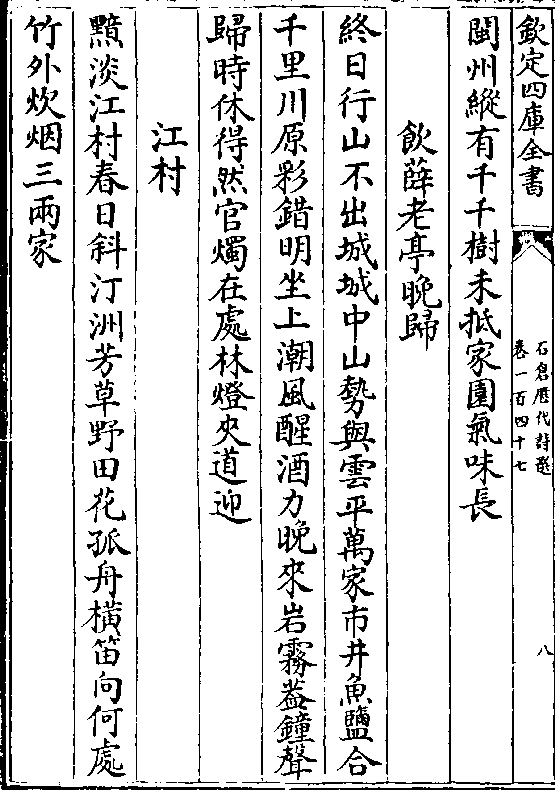 欽定四庫全書
石倉歷代詩選
卷一百四十七
八
閩州縱有千千樹未抵家園氣味長
飲薛老亭晚歸
終日行山不出城城中山勢與雲平萬家市井魚鹽合
千里川原彩錯明坐上潮風醒酒力晚來岩霧葢鐘聲
歸時休得然官燭在處林燈夾道迎
江村
黯淡江村春日斜汀洲芳草野田花孤舟橫笛向何處
竹外炊烟三兩家